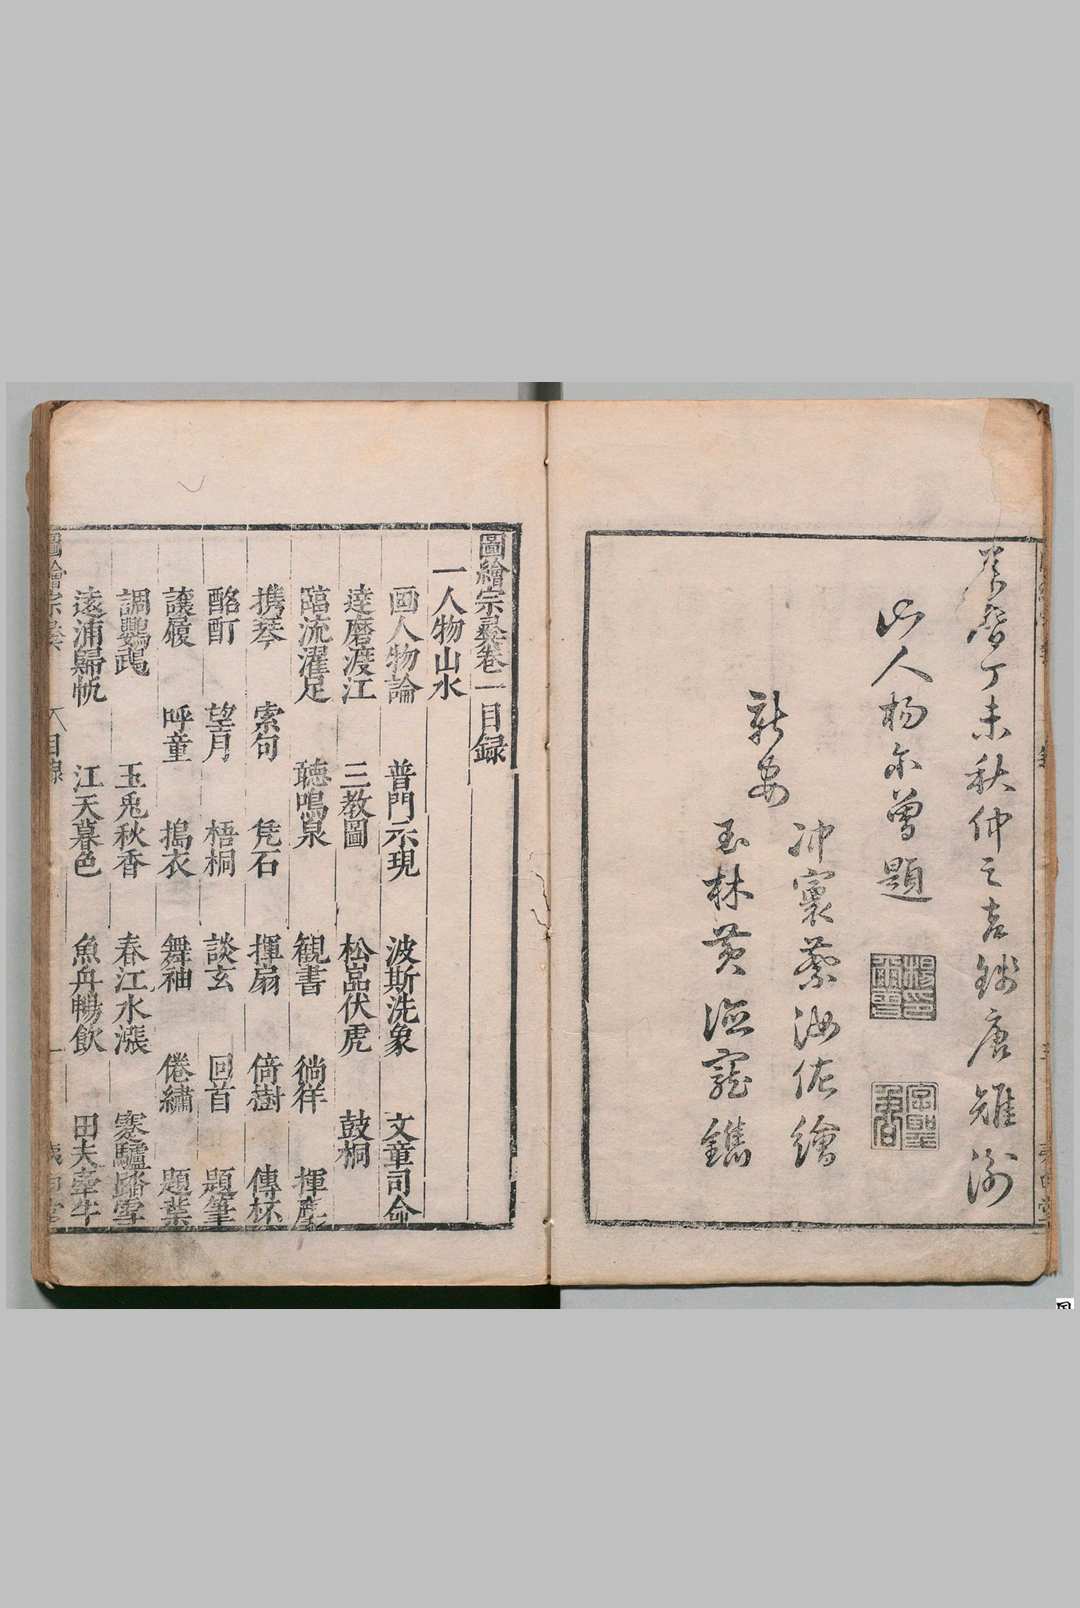 萬曆丁未秋仲之吉錢唐雉衡
山人楊尔曾題
新安
冲寰蔡汝佐繪
玉林黃德寵鐫
圖繪宗彞卷一目録
一人物山水
画人物論 普門示現 波斯洗象 文章司命
達磨渡江 三教圖 松嵓伏虎 鼓桐
臨流濯足 聴鳴泉 観書 徜徉 揮麈
携琴 索句 凭石 揮扇 倚樹 傳杯
酩酊 望月 梧桐 談玄 回首 題筆
讓履 呼童 搗衣 舞袖 倦繡 題葉
調鸚鵡 玉兎秋香 春江水漲 蹇驢踏雪
遠浦歸帆 江天暮色 魚舟暢飲 田夫牽牛
圖繪宗彞 目録 一 夷白堂